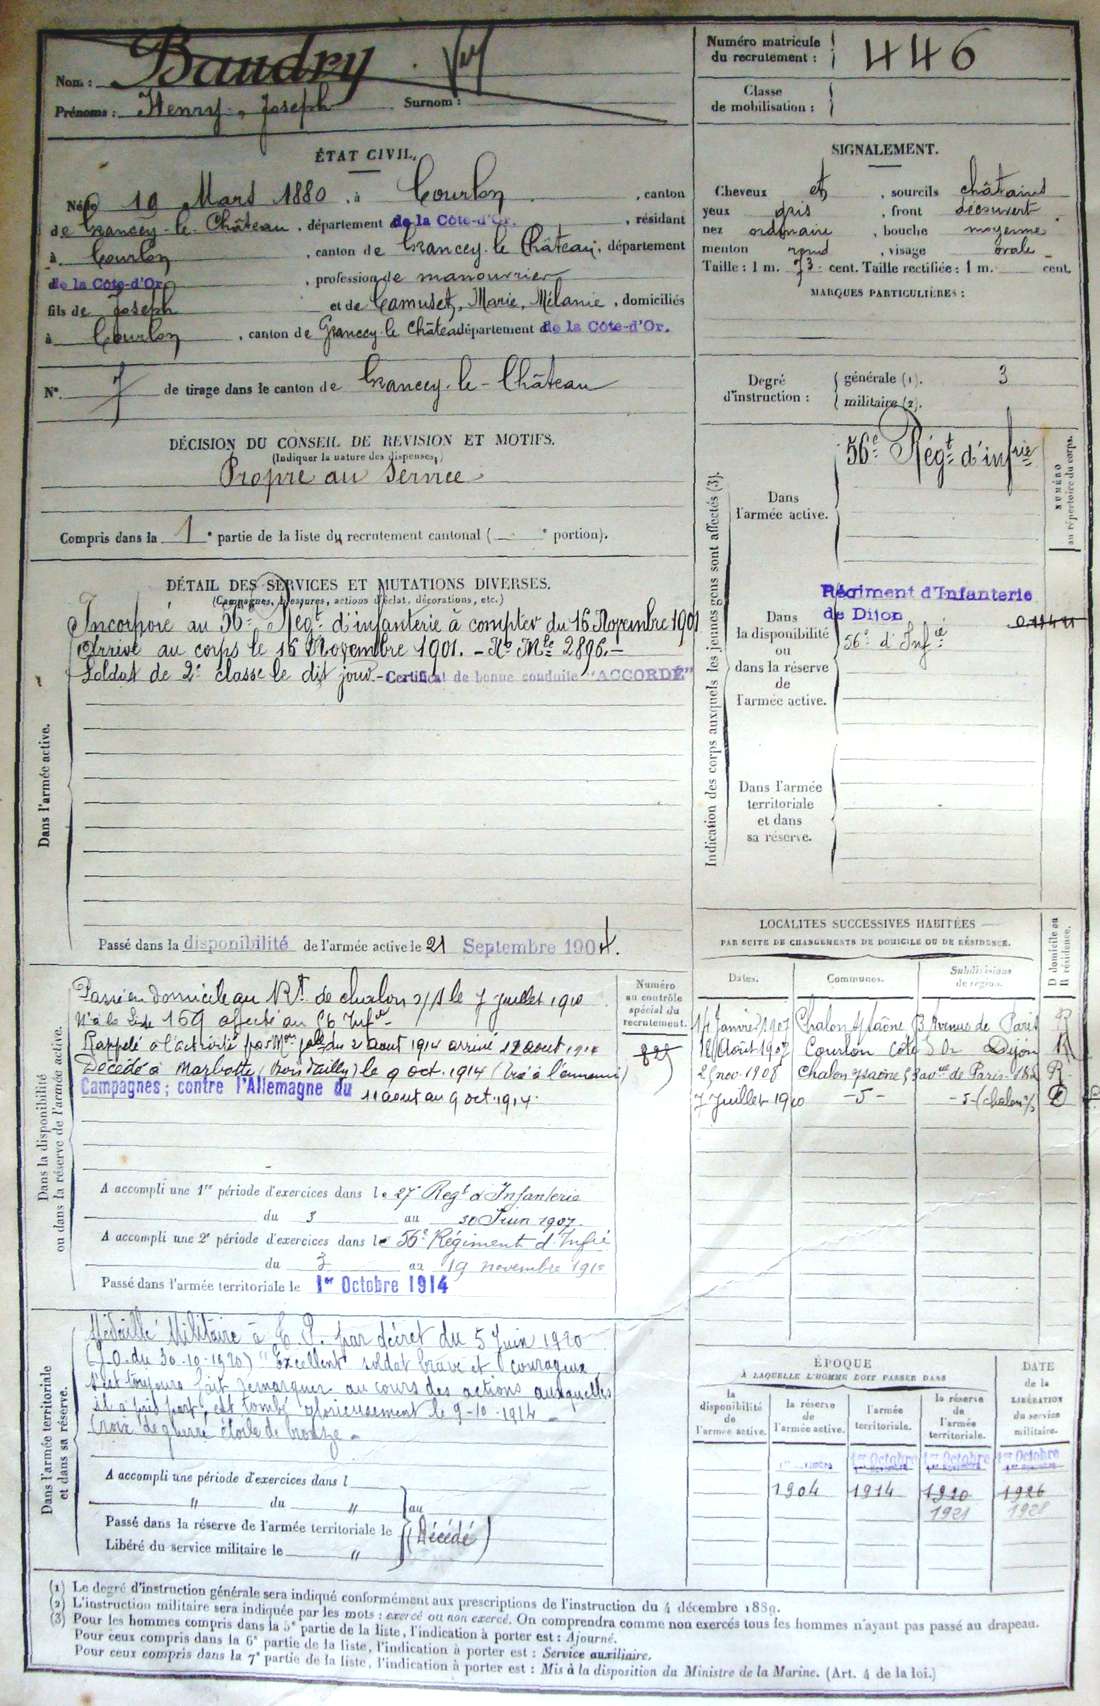 Nom : Baudry
Prénoms : Henry, Joseph Surnom :
Numéro matricule du recrutement : 446
Classe de mobilisation :
ÉTAT CIVIL.
Né le 19 Mars 1880, à Courlon, canton
de Grancey-le-Château, département de la Côte-d'Or, résidant
à Courlon, canton de Grancey-le-Château, département
de la Côte-d'Or, profession de manouvrier
fils de Joseph et de Camuset, Marie, Mélanie, domiciliés
à Courlon, canton de Grancey-le-Château département de la Côte-d'Or.
N° 7 de tirage dans le canton de Grancey-le-Château
SIGNALEMENT.
Cheveux et, sourcils châtains
yeux gris, front découvert
nez ordinaire, bouche moyenne
menton rond, visage ovale
Taille : 1 m. 73 cent. Taille rectifiée : 1 m. cent.
MARQUES PARTICULIÈRES :
Degré d'instruction : générale (1). 3
militaire (2).
DÉCISION DU CONSEIL DE REVISION ET MOTIFS.
(Indiquer la nature des dispenses.)
Propre au service
Compris dans la 1e partie de la liste du recrutement cantonal ( e portion).
DÉTAIL DES SERVICES ET MUTATIONS DIVERSES.
(Campagnes, blessures, actions d'éclat, décorations, etc.)
Dans l'armée active.
Incorporé au 56e Régt d'infanterie à compter du 16 Novembre 1901
Arrivé au corps le 16 Novembre 1901. - No Mle 2896. -
Soldat de 2e classe le dit jour. - Certificat de bonne conduite "ACCORDÉ"
Passé dans la disponibilité de l'armée active le 21 Septembre 1904.
Indication des corps auxquels les jeunes gens sont affectés (3).
NUMÉRO au répertoire du corps.
Dans l'armée active.
56e Régt d'infrie
Dans la disponibilité ou dans la réserve de l'armée active.
Régiment d'Infanterie
de Dijon
56e d'Infie
Dans l'armée territoriale et dans sa réserve.
Dans la disponibilité ou dans la réserve de l'armée active.
Numéro au contrôle spécial du recrutement.
Passé en domicile au Rt de Chalon s/S le 7 juillet 1910
affecté au 56 Infie
Rappelé à l'activité par Mon gale du 2 août 1914 arrivé 12 août 1914
Décédé à Marbotte (Bois d'Ailly) le 9 oct. 1914 (tué à l'ennemi)
Campagnes ; contre l'Allemagne du 11 août au 9 oct. 1914.
A accompli une 1re période d'exercices dans le 27e Regt d'Infanterie
du 3 au 30 Juin 1907.
A accompli une 2e période d'exercices dans le 56e Régiment d'Infie
du 3 au 19 novembre 1910
Passé dans l'armée territoriale le 1er Octobre 1914
LOCALITÉS SUCCESSIVES HABITÉES
PAR SUITE DE CHANGEMENTS DE DOMICILE OU DE RÉSIDENCE.
Dates. Communes. Subdivisions de région. D domicile ou R résidence.
14 Janvier 1907 Chalon s/Saône 3 Avenue de Paris R
12 Août 1907 Courlon Côte d'Or Dijon R
2 nov. 1908 Chalon s/Saône 53 avue de Paris R
7 Juillet 1910 -d- -d- (Chalon s/s D
Dans l'armée territoriale et dans sa réserve.
Médaille Militaire à T. P. par décret du 5 juin 1920
(J.O. du 30-10-1920) "Excellent soldat brave et courageux
s'est toujours fait remarquer au cours des actions auxquelles
il a pris part, est tombé glorieusement le 9-10-1914 -
Croix de guerre étoile de bronze -
A accompli une période d'exercices dans l
" du " au
Passé dans la réserve de l'armée territoriale le
Libéré du service militaire le "
(Décédé)
ÉPOQUE
À LAQUELLE L'HOMME DOIT PASSER DANS
DATE de la LIBÉRATION du service militaire.
la disponibilité de l'armée active. la réserve de l'armée active. l'armée territoriale. la réserve de l'armée territoriale.
1er Octobre 1er Octobre 1er Octobre
1904 1914 1920 1926
1921 1928
(1) Le degré d'instruction générale sera indiqué conformément aux prescriptions de l'instruction du 4 décembre 1889.
(2) L'instruction militaire sera indiquée par les mots : exercé ou non exercé. On comprendra comme non exercés tous les hommes n'ayant pas passé au drapeau.
(3) Pour les hommes compris dans la 5e partie de la liste, l'indication à porter est : Ajourné.
Pour ceux compris dans la 6e partie de la liste, l'indication à porter est : Service auxiliaire.
Pour ceux compris dans la 7e partie de la liste, l'indication à porter est : Mis à la disposition du Ministre de la Marine. (Art. 4 de la loi.)